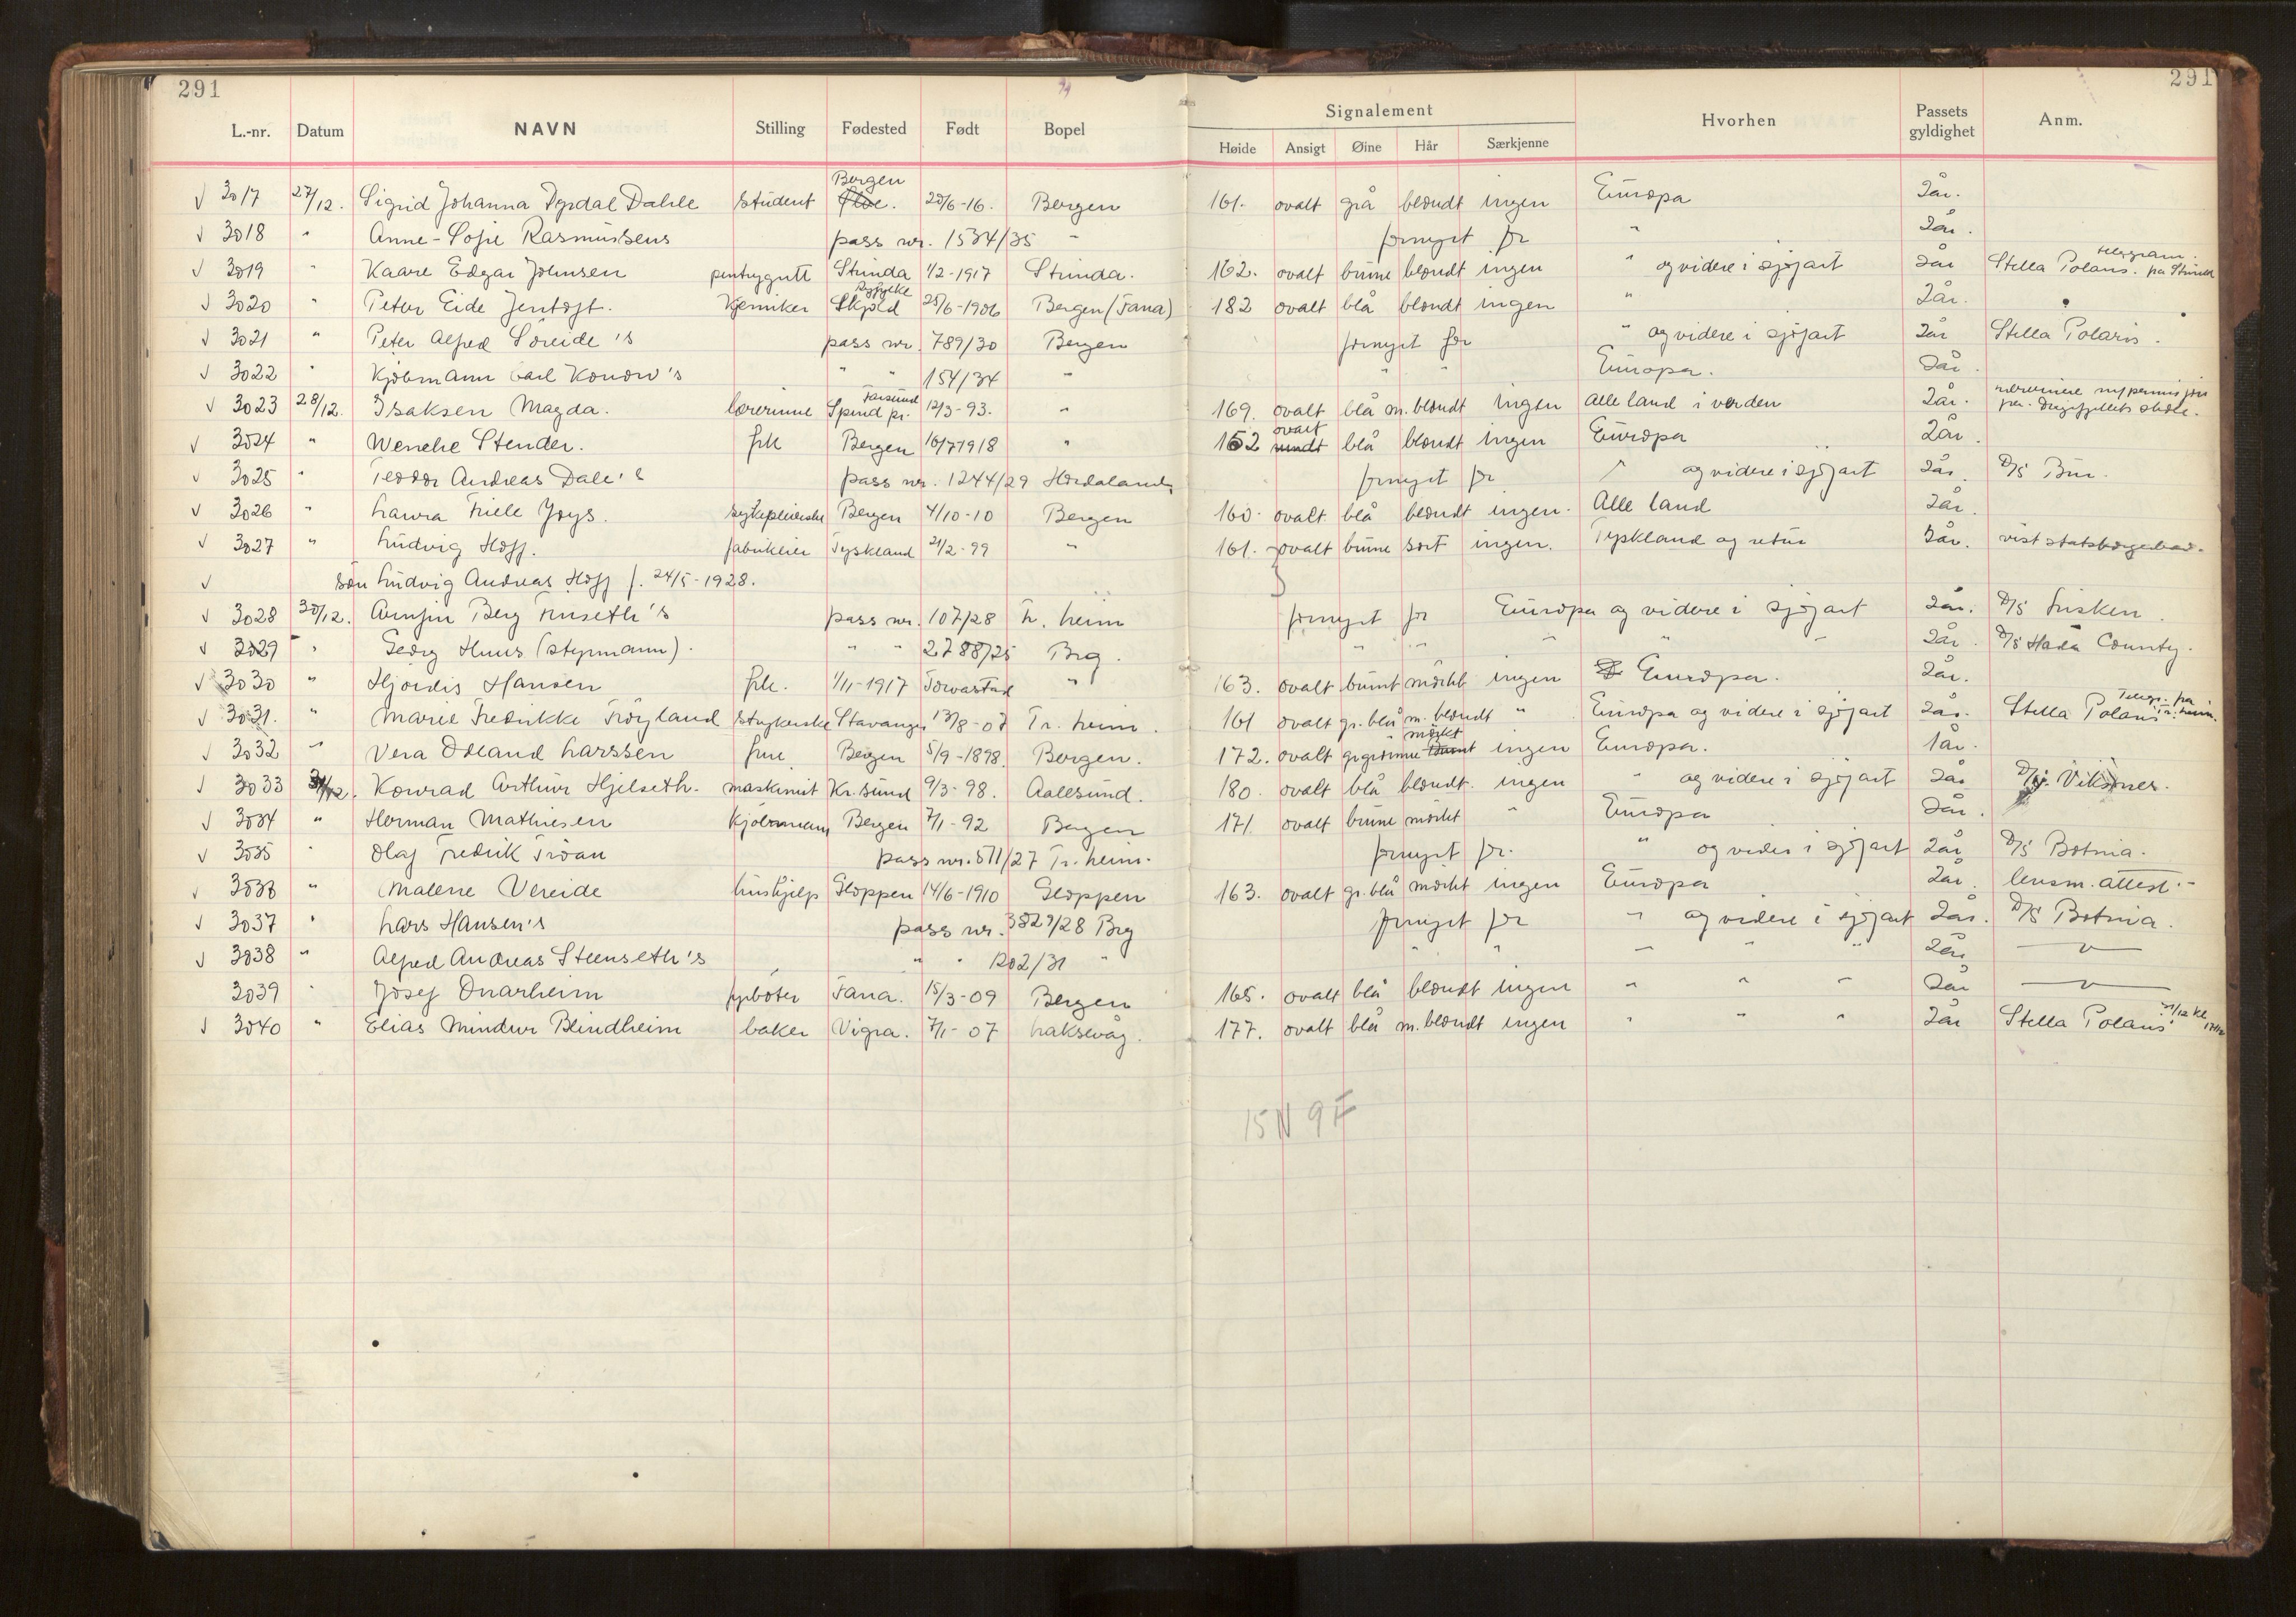 291 291
L.-nr. Datum NAVN Stilling Fødested Født Bopel Signalement Høide Ansigt Øine Hår Særkjenne Hvorhen Passets gyldighet Anm.
3017 27/12. Sigrid Johanna Dyrdal Dahle student Bergen 20/6-16. Bergen 161. ovalt grå blondt ingen Europa 2år.
3018 " Anne-Sofie Rasmussens pass nr. 1534/35 " fornyet for " 2år.
3019 " Kaare Edgar Johnsen pentrygutt Strinda 1/2-1917 Strinda. 162. ovalt brune blondt ingen " og videre i sjøfart 2år Stella Polaris. telegram. fra Strinda
3020 " Peter Eide Jentoft. Kjemiker Skjold Ryfylke 25/6-1906 Bergen (Fana) 182 ovalt blå blondt ingen " 2år.
3021 " Peter Alfred Soreide's pass nr. 789/30 Bergen fornyet for " og videre i sjøfart 2år Stella Polaris.
3022 " Kjøbmann Carl Konow's " " 154/34 " " " Europa. 2år.
3023 28/12. Isaksen Magda. lærerinne Spind pr. Farsund 12/3-93. " 169. ovalt blå m. blondt ingen Alle land i verden 2år.
3024 " Wenche Stender. frk Bergen 16/7 1918 " 152 ovalt rundt blå blondt ingen Europa 2år.
3025 " Teodor Andreas Dale's pass nr. 1244/29 Hordaland fornyet for " og videre i sjøfart 2år. D/S Bur.
3026 " Laura Friele Joys. sykepleierske Bergen 4/10-10 Bergen 160. ovalt blå blondt ingen. Alle land 2år.
3027 " Ludvig Hoff. fabrikeier Tyskland 2/2-99 " 161. ovalt brune sort ingen. Tyskland og retur 2år. vist statsborgerbrev.
søn Ludvig Andreas Hoff f. 24/5-1928.
3028 30/12. Arnfin Berg Fuseth's pass nr. 107/28 Tr. heim fornyet for Europa og videre i sjøfart 2år. D/S Frisken.
3029 " Georg Huus (styrmann). " " 2788/25 Brg. " " " " " 2år. D/S Hada County.
3030 " Hjørdis Hansen frk. 1/11-1917 Torvastad " 163. ovalt brunt mørkt ingen Europa. 2år.
3031. " Marie Fredrikke Frøyland strykerske Stavanger 13/8-07 Tr. heim. 161 ovalt gr. blå m. blondt " Europa og videre i sjøfart 2år. Stella Polaris Telegr. fra Tr. heim.
3032 " Vera Odland Larssen frue Bergen 5/9-1898. Bergen. 172. ovalt grgrønne mørkt brunt ingen Europa. 1år.
3033 31/12. Konrad Arthur Hjelseth. maskinist Kr. sund 9/3-98. Aalesund. 180. ovalt blå blondt. ingen " og videre i sjøfart 2år Viksnes.
3034 " Herman Mathiesen Kjøbmann Bergen 7/1-92 Bergen 171 ovalt brune mørkt " Europa 2år.
3035 " Olaf Fredrik Troan pass nr. 511/27 Tr. heim. fornyet for. " og videre i sjøfart 2år D/S Botnia.
3036 " Malene Vereide hushjelp Gloppen 14/6-1910 Gloppen 163. ovalt gr. blå mørkt ingen Europa 2år. lensm. attest.
3037 " Lars Hansen's pass nr. 3829/28 Brg fornyet for " og videre i sjøfart 2år. D/S Botnia.
3038 " Alfred Andreas Steenseth's " " 1202/31 " " " " " " 2år — v —
3039 " Josef Onarheim fyrbøter Fana. 15/3-09 Bergen 165. ovalt blå blondt ingen " " " 2år — v —
3040 " Elias Mindur Blindheim baker Vigra. 7/1-07 Laksevåg. 177. ovalt blå m. blondt ingen " " " 2år Stella Polaris 31/12 kl.
15 N 9 F